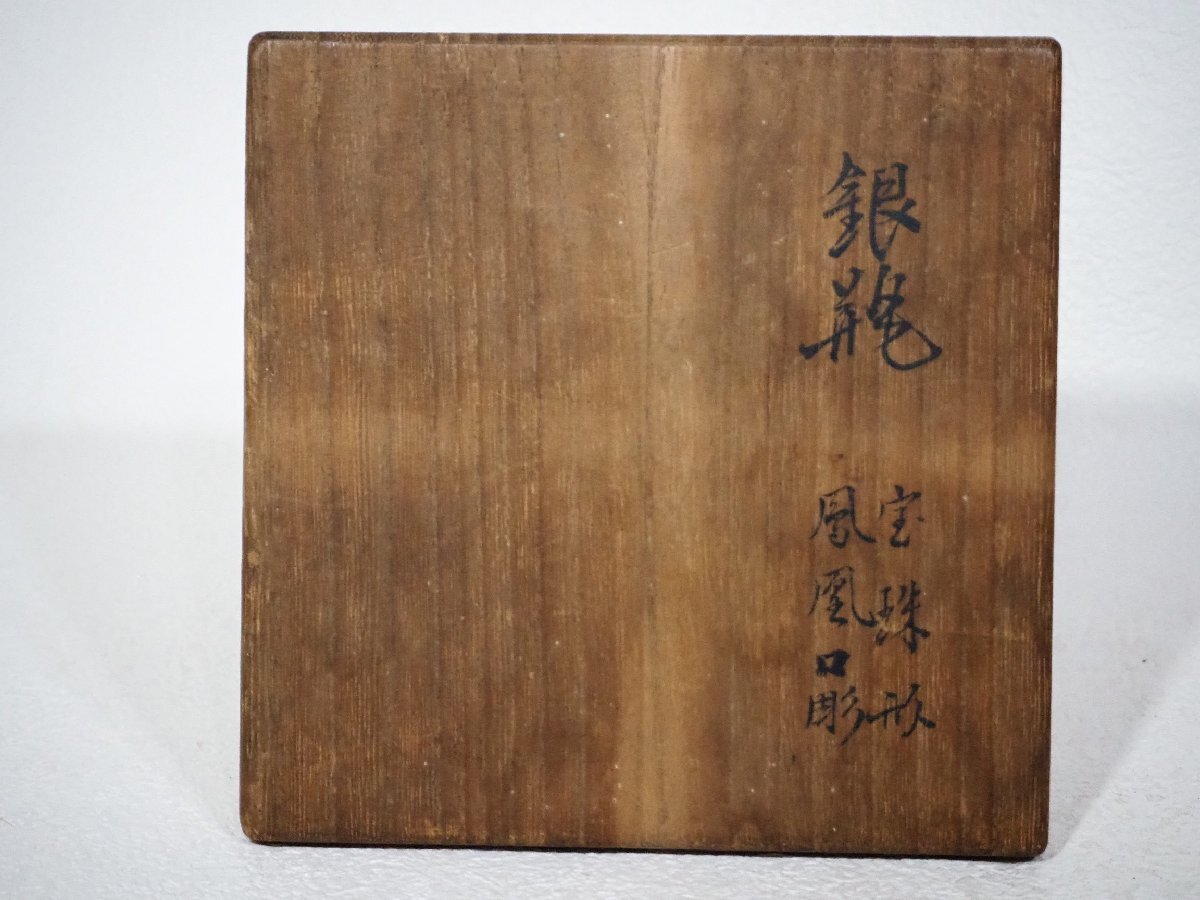 銀瓶
宝珠形
鳳凰口彫